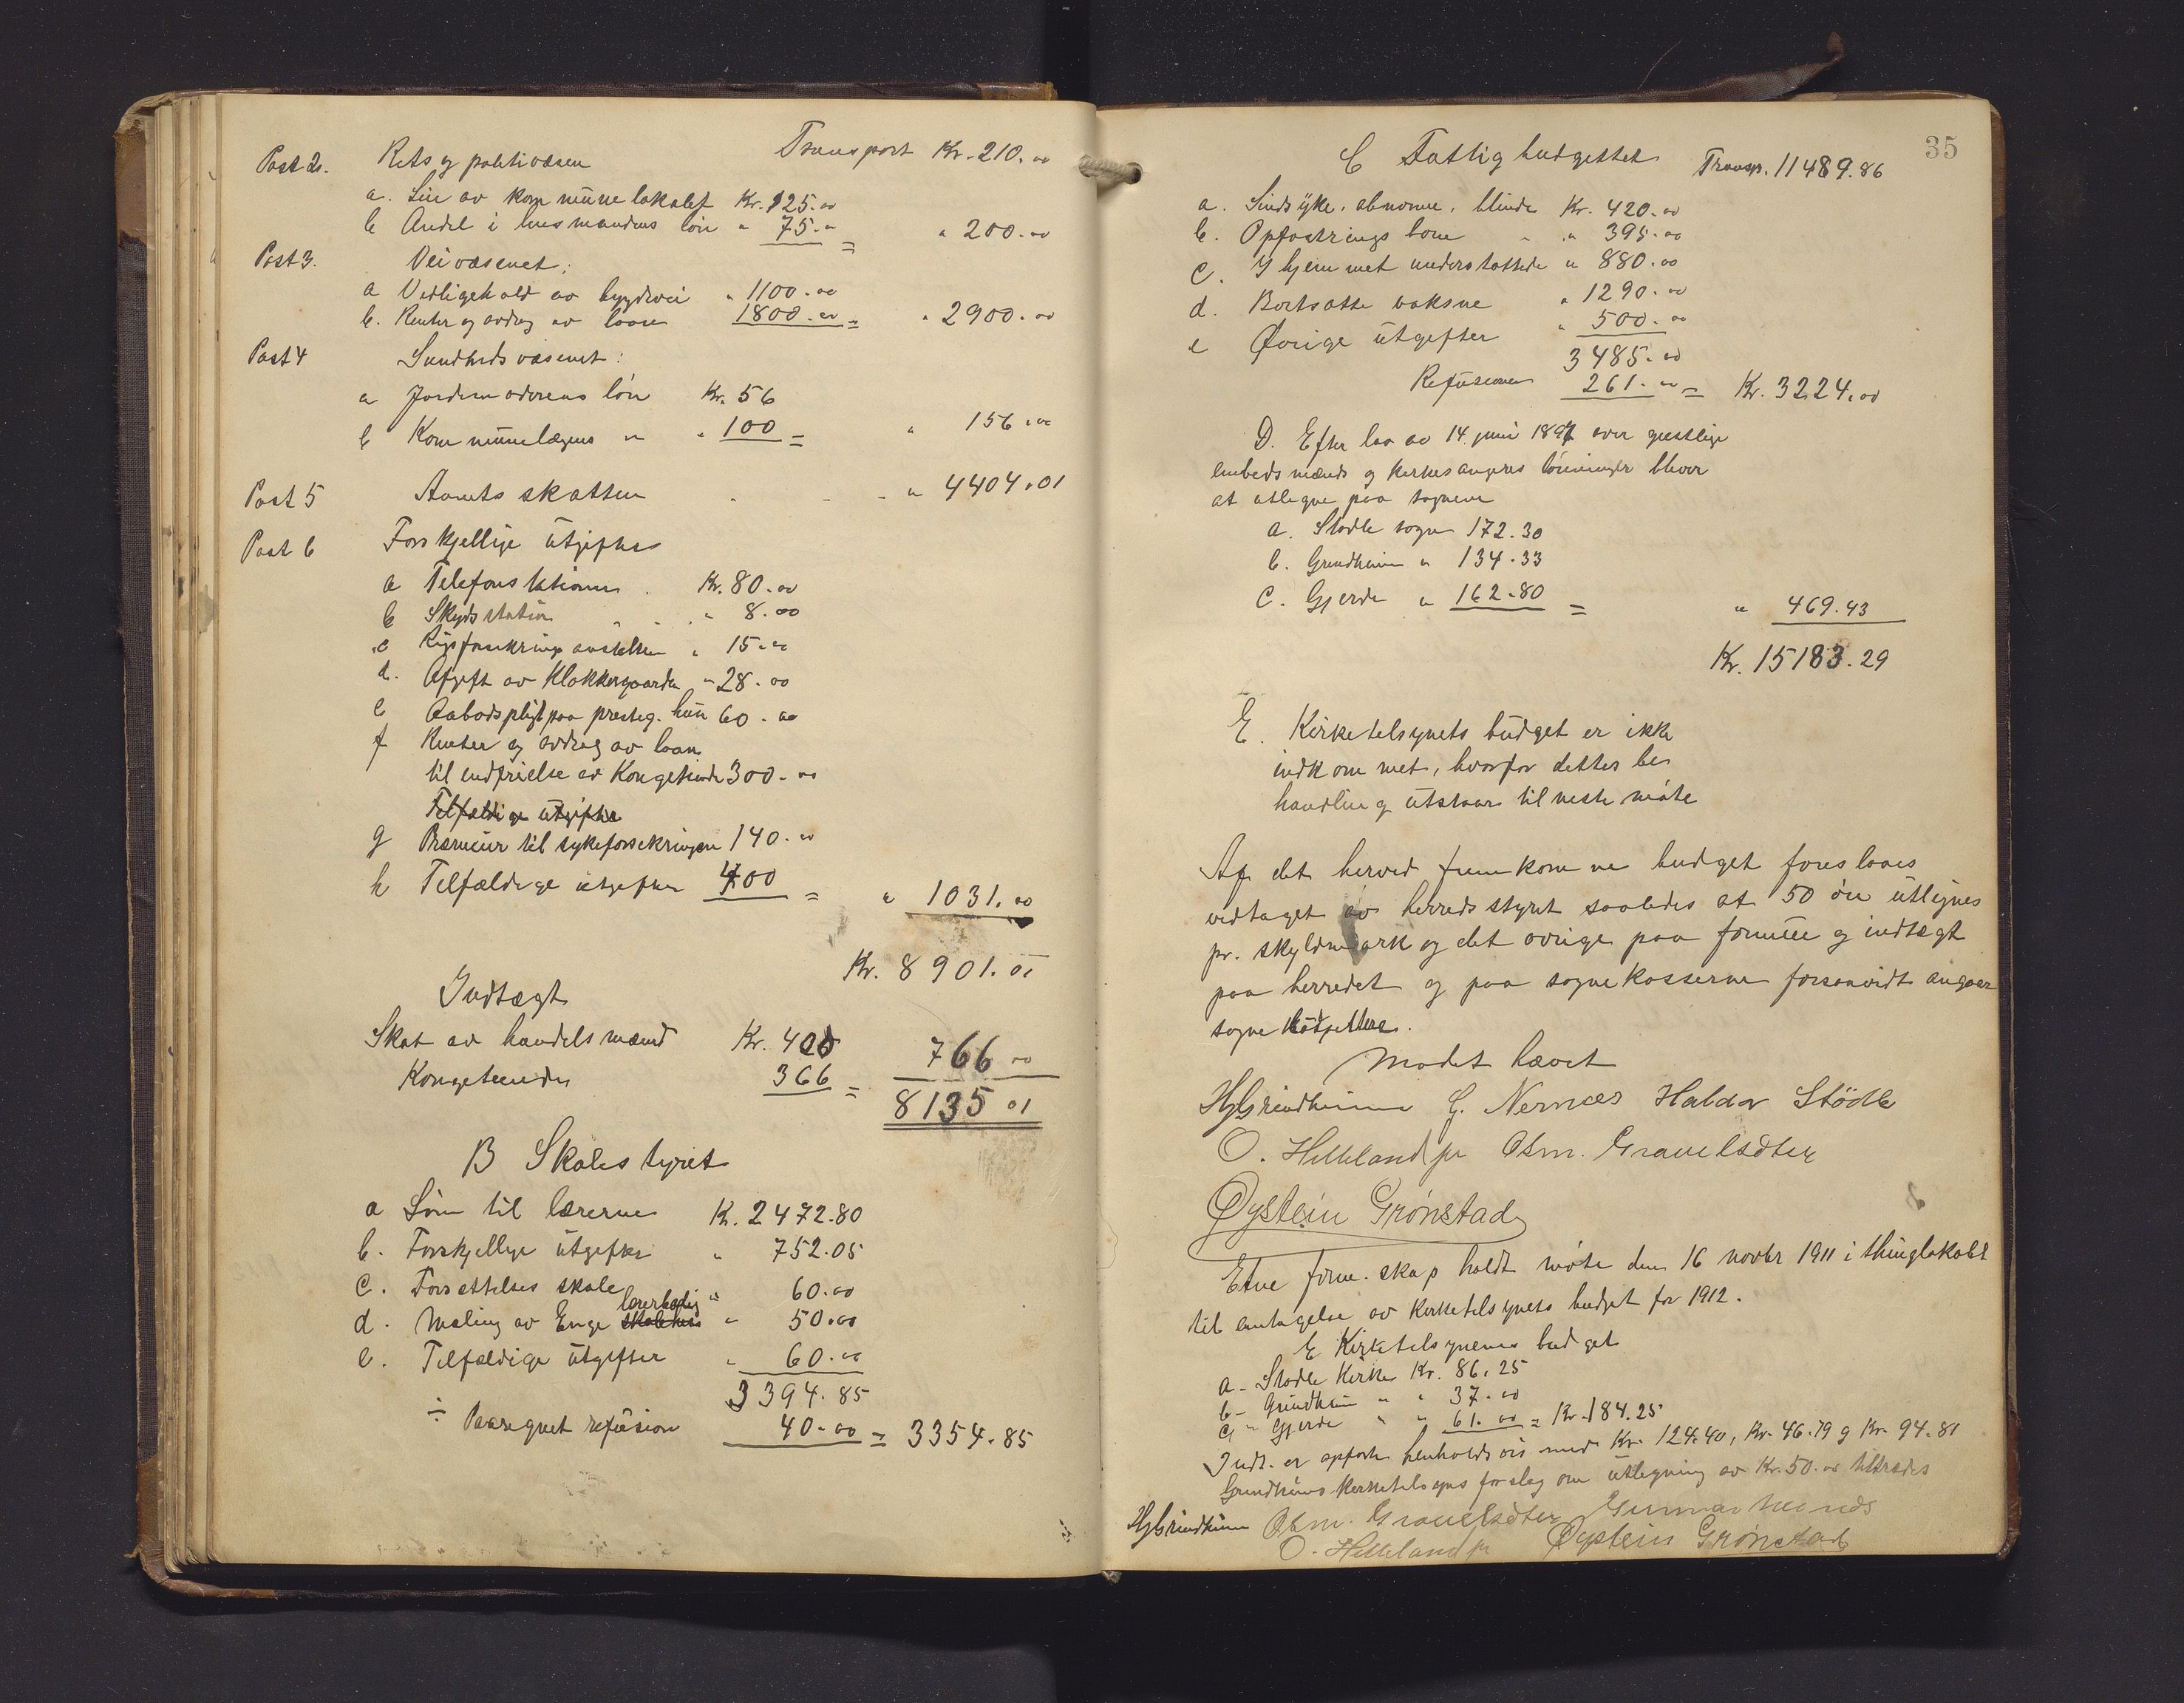 Transport Kr. 210.00
Post 2. Rets og politivæsen
a. Leie av kommunelokalet Kr. 125.00
b Andel i lensmandens løn " 75.00 = " 200.00
Post 3. Veivæsenet:
a Vedligehold av bygdevei " 1100.00
b. Renter og avdrag av laan 1800.00 = " 2900.00
Post 4 Sundhedsvæsenet:
a Jordemoderens løn Kr. 56
b Kommunelægens " " 100 = " 156.00
Post 5 Amtsskatten " 4404.01
Post 6 Forskjellige utgifter
a Telefonstationer Kr. 80.00
b Skydsstation " 8.00
c Rigsforsikringsanstalten " 15.00
d. Afgift av Klokkergaarden " 28.00
e Aabodspligt paa presteg. hus 60.00
f Renter og avdrag av laan
til indfrielse av Kongetiende 300.00
Tilfældige utgifter
g Præmier til sykeforsikringen 140.00
h Tilfældige utgifter 400 = " 1031.00
Kr. 8901.01
Indtægt
Skat av handelsmænd Kr. 400
Kongetiende 366 = 766 00
8135 01
B Skolestyret
a Løn til lærerne Kr. 2472.80
b. Forskjellige utgifter " 752.05
c. Forsættelses skole " 60.00
d. Maling av Enge skolehus lærerbolig " 50.00
e. Tilfældige utgifter " 60.00
3394.85
÷ Paaregnet refusion 40.00 = 3354.85
35
C Fattigbudgettet Transp. 11489.86
a. Sindsyke, abnorme, blinde Kr. 420.00
b. Opfostringsbørn " " 395.00
c. I hjemmet understøttede " 880.00
d. Bortsatte voksne " 1290.00
e Øvrige utgifter " 500.00
3485.00
Refusioner 261.00 = Kr. 3224.00
D. Efter lov av 14 juni 1897 over geistlige
embedsmænds og kirkesangeres lønninger bliver
at utlegne paa sognene
a. Stødle sogn 172.30
b. Grindheim " 134.33
c. Gjerde " 162.80 = " 469.43
Kr. 15183.29
E. Kirketilsynets budget er ikke
indkommet, hvorfor dettes be
handling utstaar til neste møte
Af det herved fremkomne budget foreslaaes
vedtaget av herredsstyret saaledes at 50 øre utlignes
pr. skyldmark og det øvrige paa formue og indtægt
paa herredet og paa sognekasserne forsaavidt angaar
sognebudgetterne.
Mødet hævet
H Grindheim G. Nernæs Haldor Stødle
O. Helleland jr Osm. Gravelsæter
Øystein Grønstad
Etne form.skap holdt møte den 16 novbr 1911 i thinglokalet
til antagelse av Kirketilsynets budget for 1912.
E Kirketilsynenes budget
a - Stødle Kirke Kr. 86.25
b - Grindheim " " 37.00
c, " Gjerde " " 61.00 = Kr. 184.25
Indt. er opført henholdsvis med Kr. 124.40, Kr. 46.79 og Kr. 94.81
Grindheims kirketilsyns forslag om utlegning av Kr. 50.00 tiltrædes
H Grindheim Osm. Gravelsæter Gunnar
O. Helleland jr Øystein Grønstad